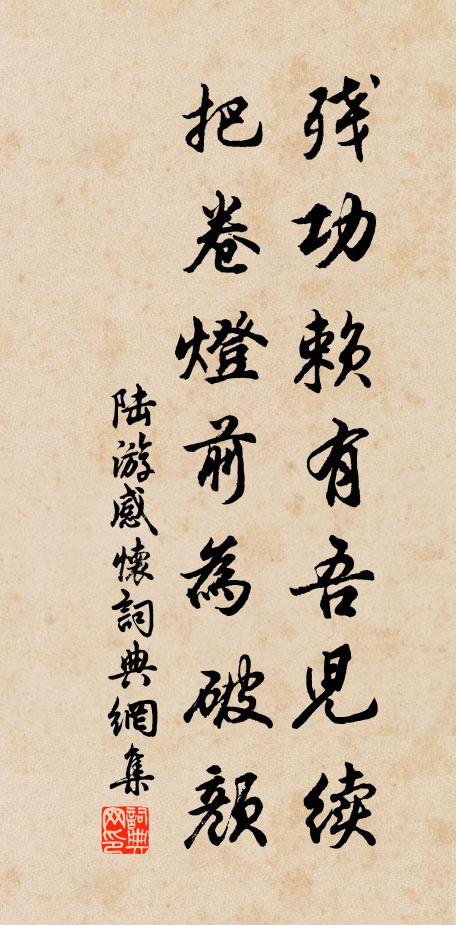 残功赖有吾児续
把卷燈前為破颜
陆游感懷詞典網集
詞典网印